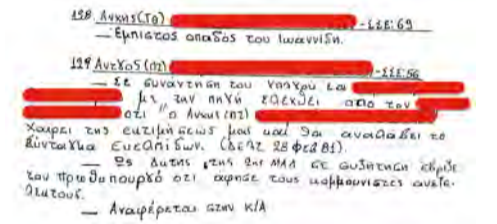 128 Ανχης(ΤΘ) -ΣΣΕ:69
— Εμπιστος οπαδός του Ιωαννίδη.
129 Ανχος(ΠΖ) -ΣΣΕ:56
— Σε συνάντηση του
με την πηγή ελέχθει απο τον
οτι "ο Ανχης(ΠΖ)
χαιρει της εκτιμήσεώς μας και θα αναλάβει το
Σύνταγμα Ευελπίδων. (ΔΕΛΤ 28 φεβ 81).
— Ως Δκτης της 2ης ΜΑΛ σε συζήτηση έβριζε
τον πρωθυπουργό οτι άφησε τους κομμουνιστες ανενο-
χλητους.
— Αναφέρεται στην Κ/Α